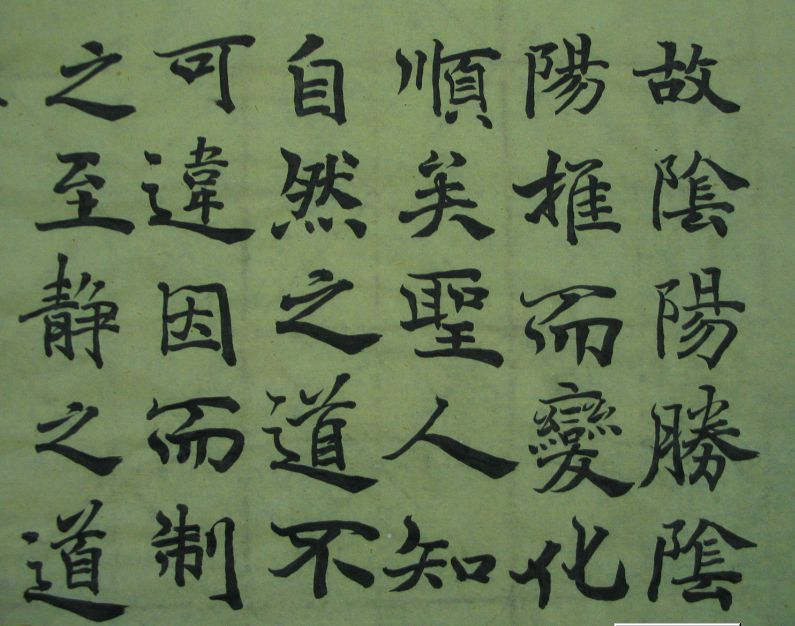 故陰陽勝陰
陽推而變化
順矣聖人知
自然之道不
可違因而制
之至静之道